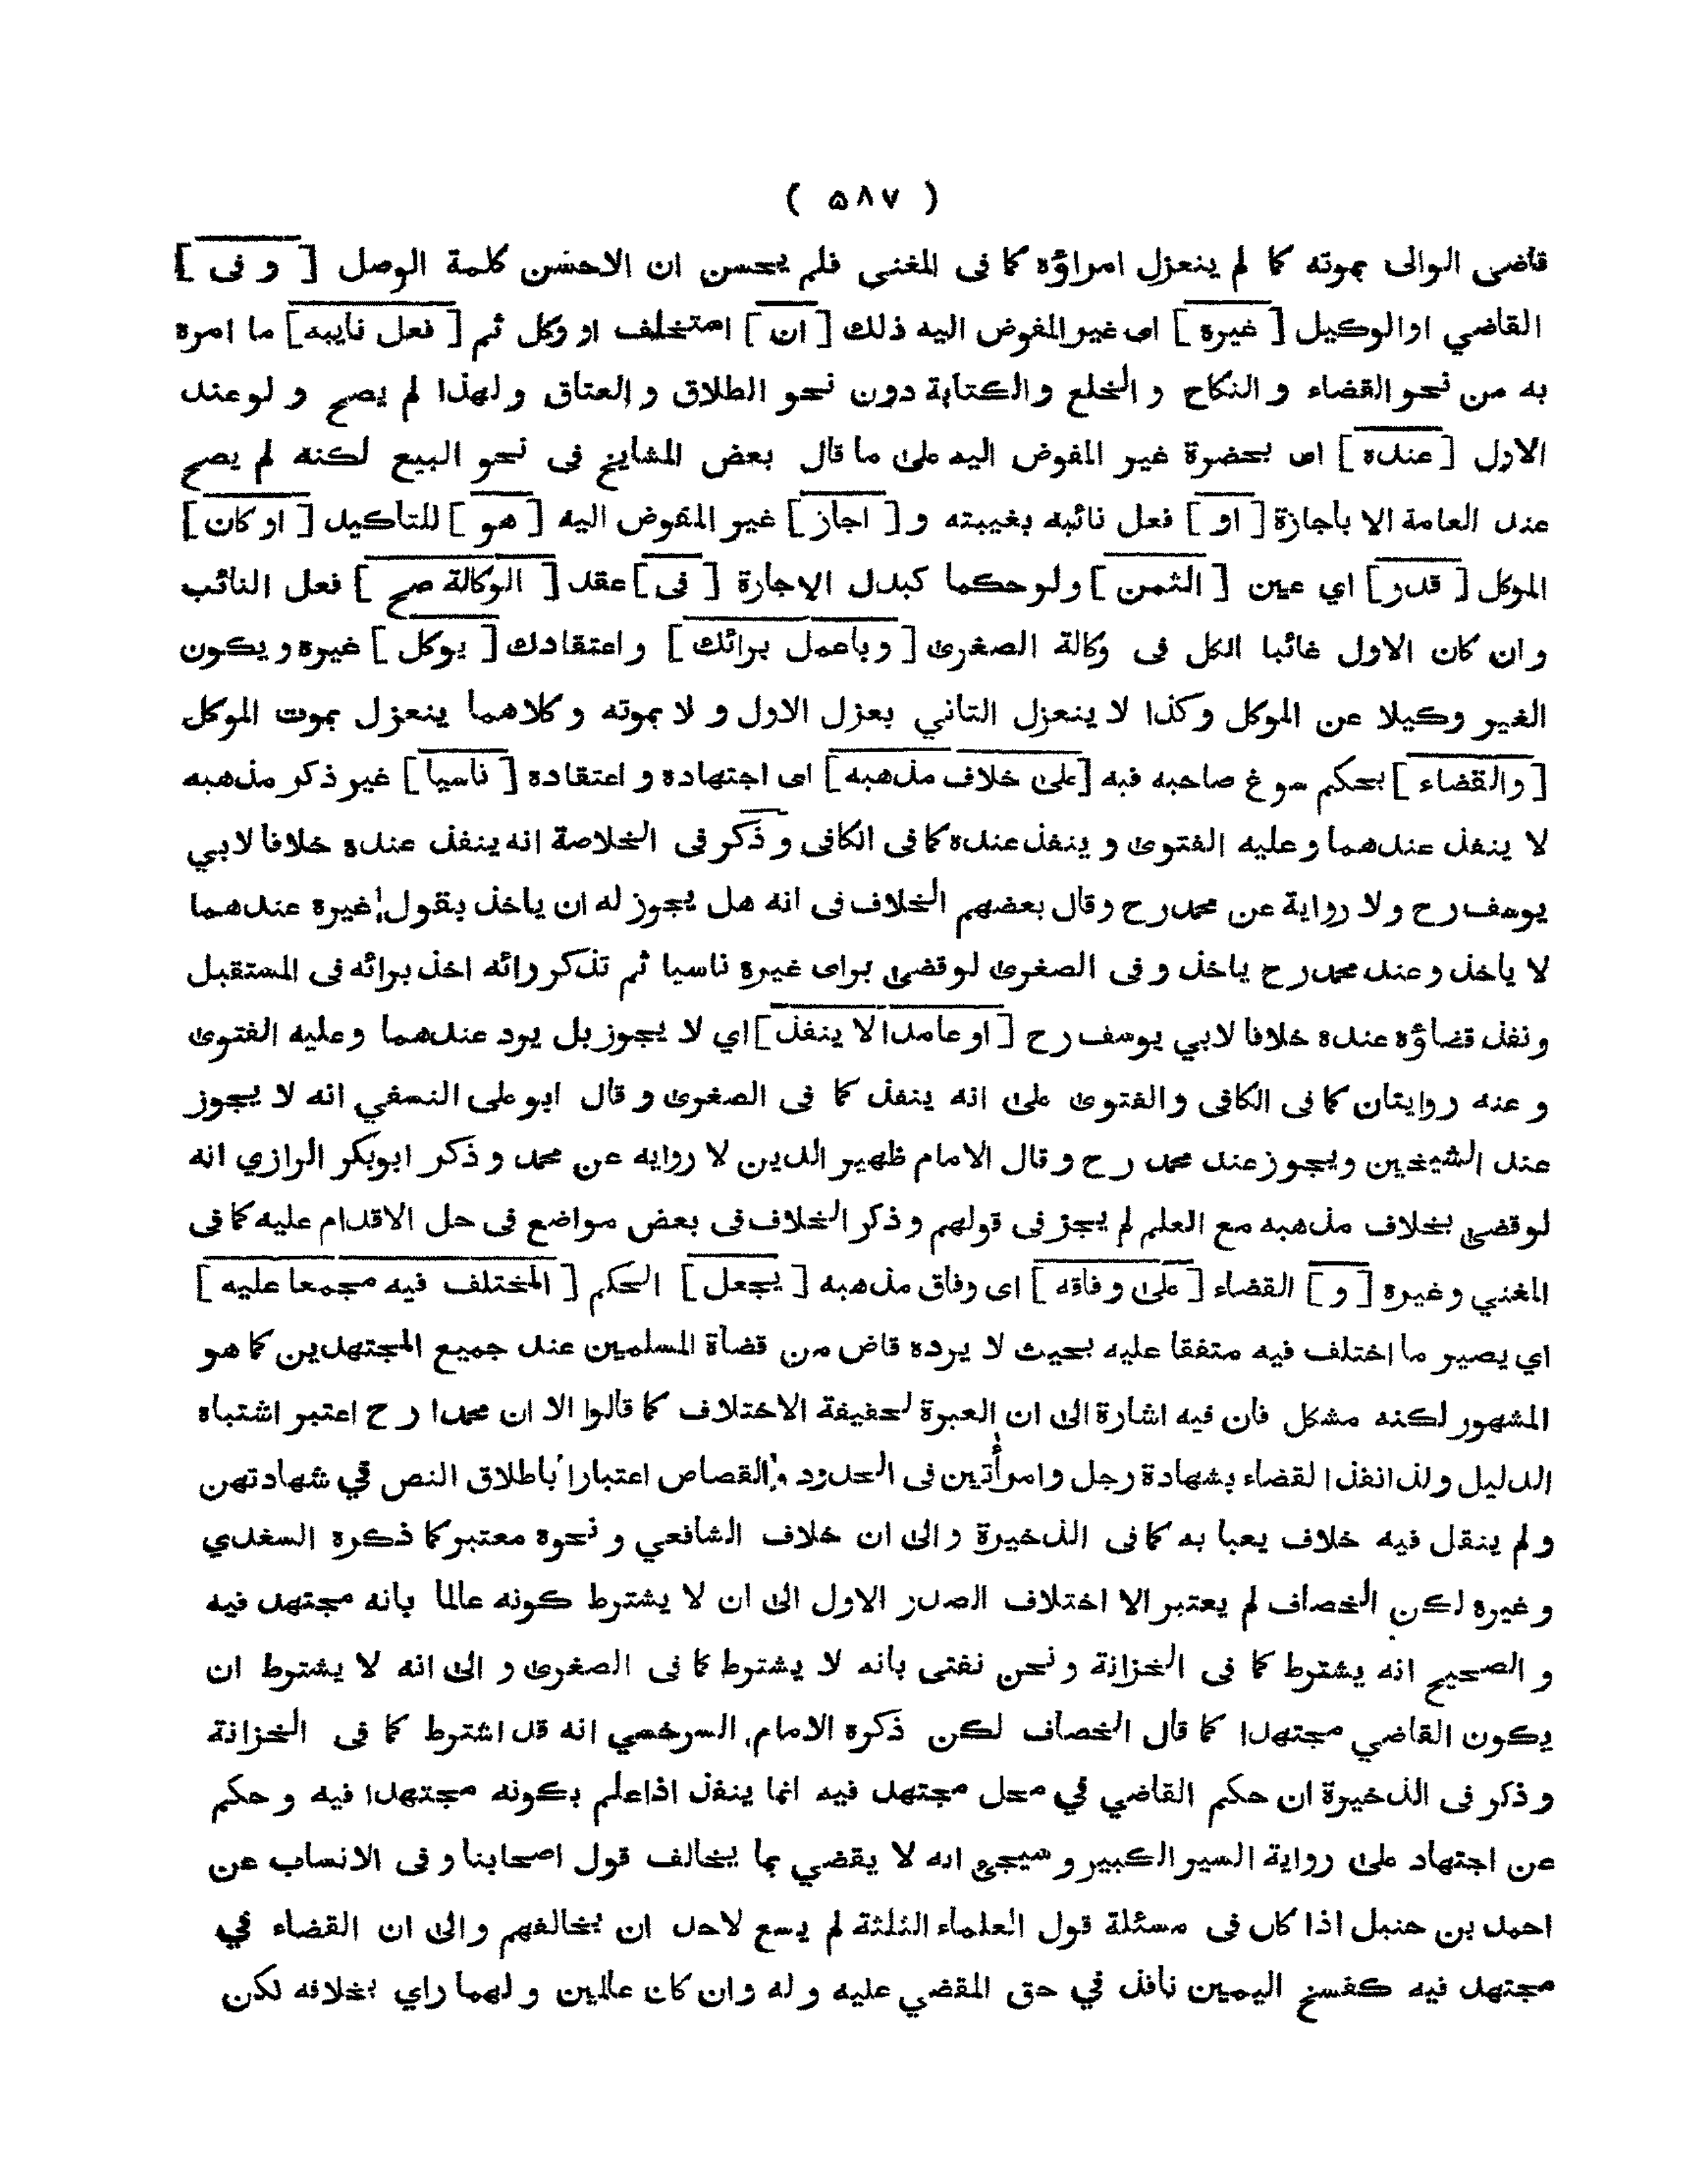 ( ۵۸۷ )
قاضى الوالى بموته كما لم ينعزل امراؤه كما فى المغنى فلم يحسن ان الاحسن كلمة الوصل [ و فى ]
القاضي اوالوكيل [ غيره ] اى غير المفوض اليه ذلك [ ان ] استخلف او وكل ثم [ فعل نايبه ] ما امره
به من نحو القضاء و النكاح و الخلع والكتابة دون نحو الطلاق و العتاق ولهذا لم يصح و لوعند
الاول [ عنده ] اى بحضرة غير المفوض اليه على ما قال بعض المشايخ فى نحو البيع لكنه لم يصح
عند العامة الا بأجازة [ او ] فعل نائبه بغيبته و [ اجاز ] غير المفوض اليه [ هو ] للتأكيد [ او كان ]
الموكل [ قدر ] اي عين [ الثمن ] ولوحكما كبدل الاجارة [ فى ] عقد [ الوكالة صح ] فعل النائب
وان كان الاول غائبا الكل فى وكالة الصغرى [ وباعمل برائك ] واعتقادك [ يوكل ] غيره ويكون
الغير وكيلا عن الموكل وكذا لا ينعزل الثاني بعزل الاول و لا بموته وكلاهما ينعزل بموت الموكل
[ والقضاء ] بحكم سوغ صاحبه فيه [ على خلاف مذهبه ] اى اجتهاده و اعتقاده [ ناسيا ] غير ذكر مذهبه
لا ينفذ عندهما وعليه الفتوى و ينفذ عنده كما فى الكافى و ذكر فى الخلاصة انه ينفذ عنده خلافا لابي
يوسف رح ولا رواية عن محمد رح وقال بعضهم الخلاف فى انه هل يجوز له ان ياخذ بقول غيره عندهما
لا ياخذ وعند محمد رح ياخذ و فى الصغرى لوقضى براى غيره ناسيا ثم تذكر رائه اخذ برائه فى المستقبل
ونفذ قضاؤه عنده خلافا لابي يوسف رح [ اوعامدا لا ينفذ ] اي لا يجوز بل يرد عندهما وعليه الفتوى
و عنه روايتان كما فى الكافى والفتوى على انه ينفذ كما فى الصغرى و قال ابو على النسفي انه لا يجوز
عند الشيخين ويجوز عند محمد رح و قال الامام ظهير الدين لا روايه عن محمد و ذكر ابوبكر الرازي انه
لوقضى بخلاف مذهبه مع العلم لم يجز فى قولهم وذكر الخلاف فى بعض مواضع فى حل الاقدام عليه كما فى
المغني وغيره [ و ] القضاء [ على وفاقه ] اى وفاق مذهبه [ يجعل ] الحكم [ المختلف فيه مجمعا عليه ]
اي يصير ما اختلف فيه متفقا عليه بحيث لا يرده قاض من قضاة المسلمين عند جميع المجتهدين كما هو
المشهور لكنه مشكل فان فيه اشارة الى ان العبرة لحقيقة الاختلاف كما قالوا الا ان محمدا رح اعتبر اشتباه
الدليل ولذا نفذ القضاء بشهادة رجل وامرأتين فى الحدود والقصاص اعتبارا باطلاق النص في شهادتهن
ولم ينقل فيه خلاف يعبا به كما فى الذخيرة والى ان خلاف الشافعي و نحوه معتبر كما ذكره السغدي
وغيره لكن الخصاف لم يعتبر الا اختلاف الصدر الاول الى ان لا يشترط كونه عالما بانه مجتهد فيه
و الصحيح انه يشترط كما فى الخزانة ونحن نفتى بانه لا يشترط كما فى الصغرى و الى انه لا يشترط ان
يكون القاضي مجتهدا كما قال الخصاف لكن ذكره الامام السرخسي انه قد اشترط كما فى الخزانة
و ذكر فى الذخيرة ان حكم القاضي في محل مجتهد فيه انما ينفذ اذاعلم بكونه مجتهدا فيه و حكم
عن اجتهاد على رواية السير الكبير و سيجىء انه لا يقضي بما يخالف قول اصحابنا و فى الانساب عن
احمد بن حنبل اذا كان فى مسئلة قول العلماء الثلثة لم يسع لاحد ان يخالفهم والى ان القضاء في
مجتهد فيه كفسخ اليمين نافذ في حق المقضي عليه و له وان كان عالمين و لهما راي بخلافه لكن